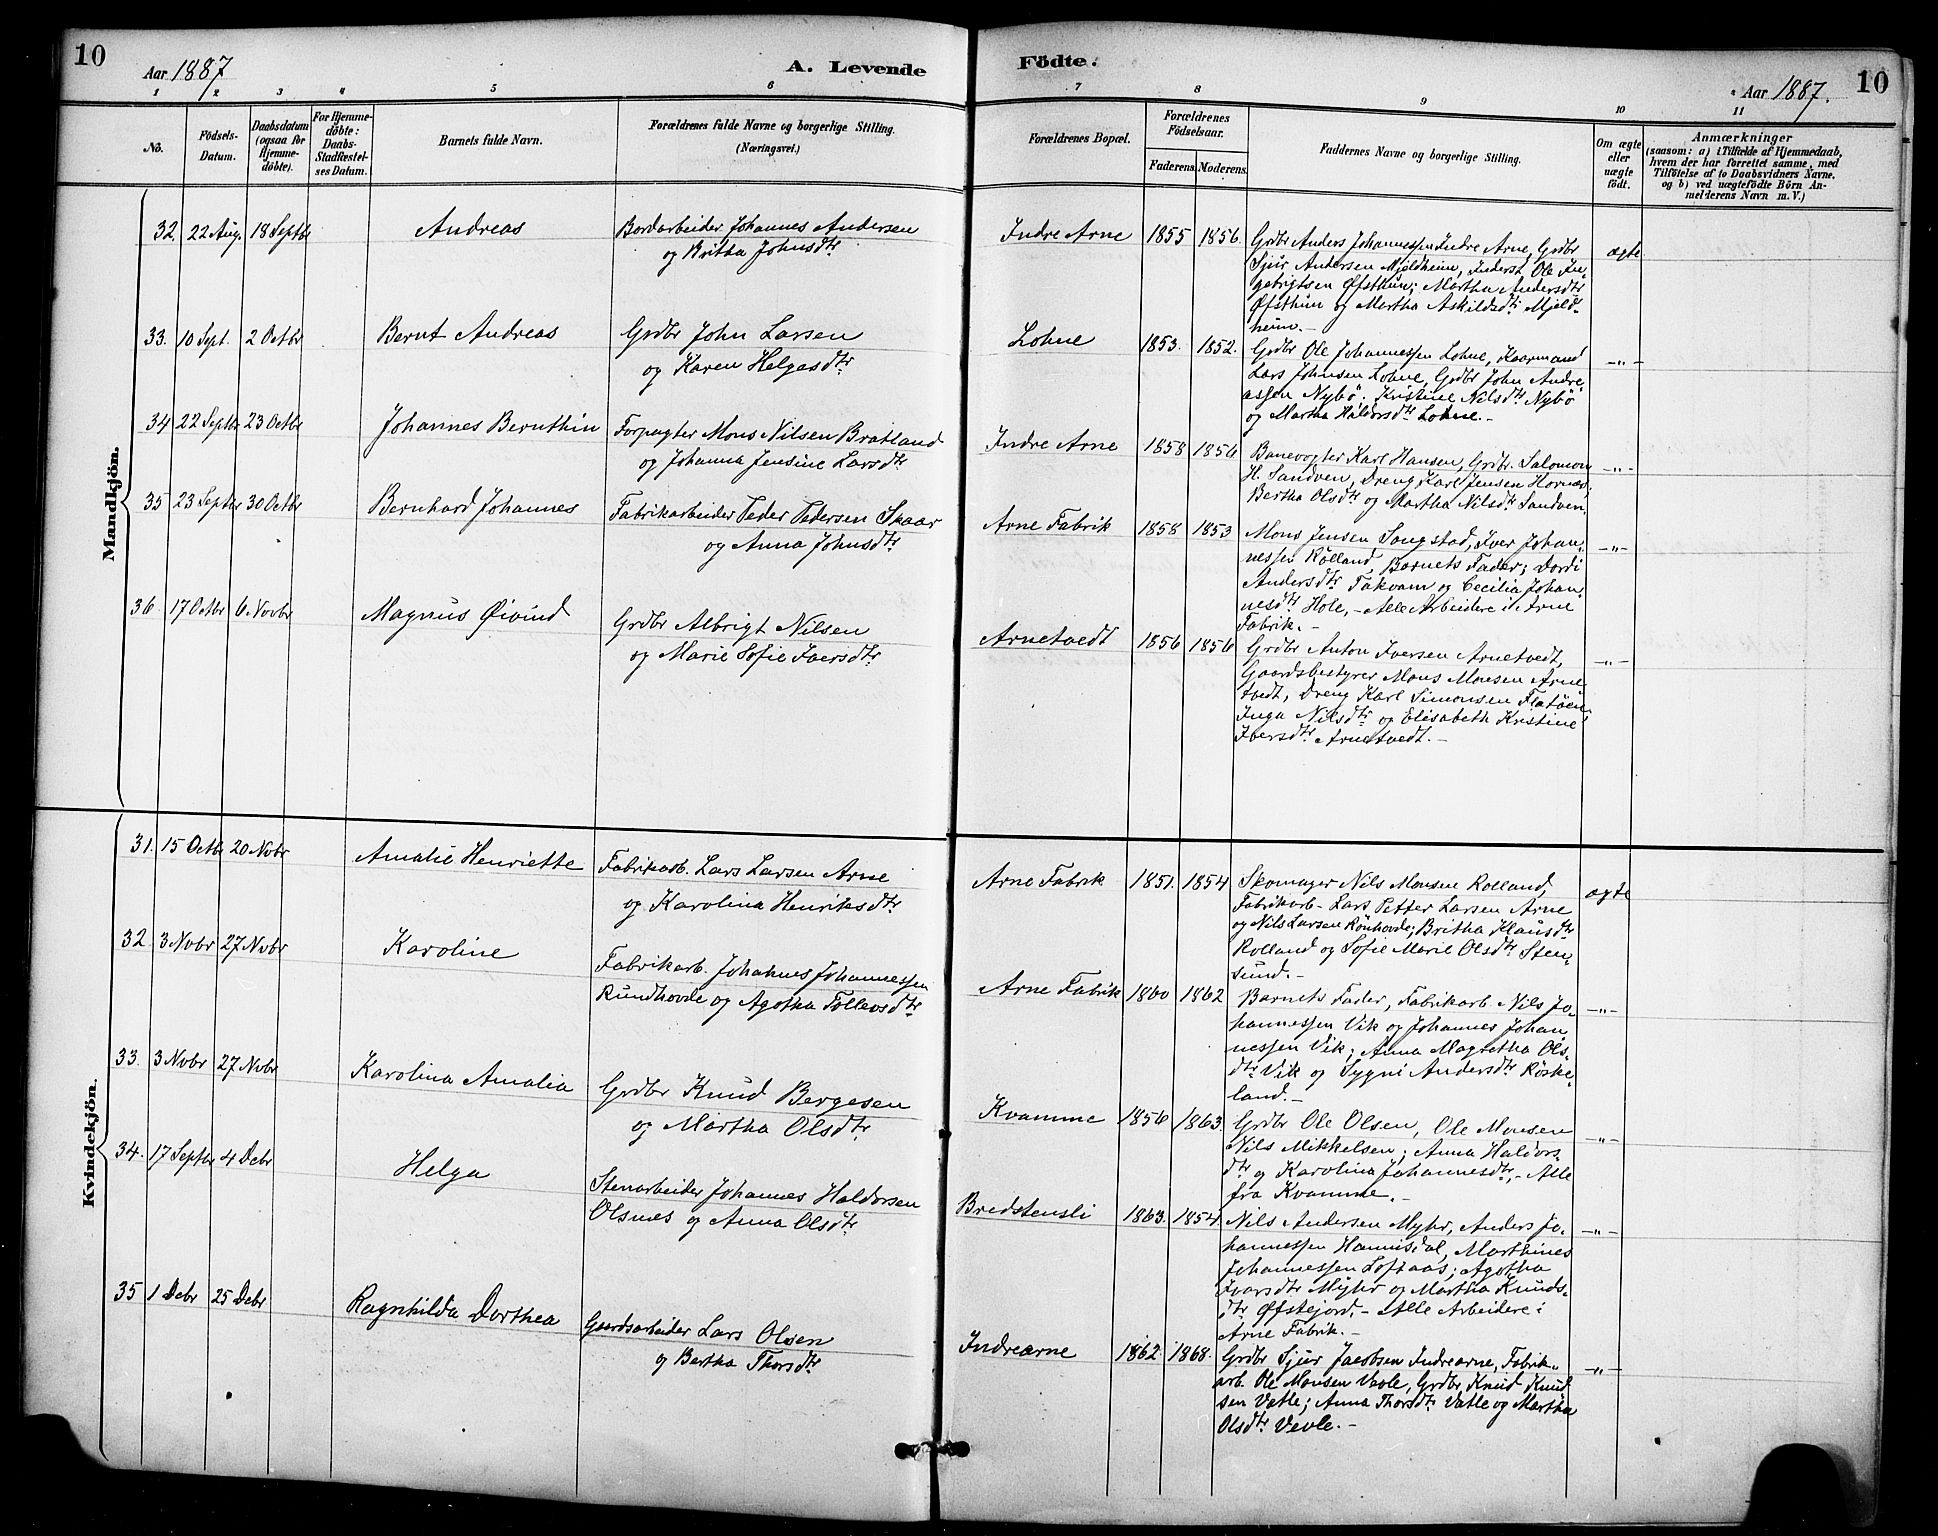 10
Aar 1887
A. Levende
Födte.
Aar 1887.
10
1 2 3 4 5 6 7 8 9 10 11
No.
Födsels-Datum.
Daabsdatum (ogsaa for Hjemme-döbte).
For Hjemme-döbte: Daabs-Stadfæstel-ses Datum.
Barnets fulde Navn.
Forældrenes fulde Navne og borgerlige Stilling.
(Næringsvei.)
Forældrenes Bopæl.
Forældrenes Födselsaar.
Faderens. Moderens.
Faddernes Navne og borgerlige Stilling.
Om ægte eller uægte födt.
Anmærkninger
(saasom: a) i Tilfælde af Hjemmedaab,
hvem der har forrettet samme, med
Tilföielse af to Daabsvidners Navne.
og b) ved uægtefödte Börn An-
melderens Navn m. V.)
Mandkjön.
32. 22 Aug. 18 Septbr Andreas
Bordarbeider Johannes Andersen
og Britha Johnsdtr
Indre Arne 1855 1856.
Grdbr Anders Johannessen Indre Arne, Grdbr
Sjur Andersen Mjeldheim, Inderst Ole In-
gebrigtsen Øfsthun; Martha Andersdtr
Øfsthun og Martha Askildsdtr Mjeld-
heim.-
ægte
33. 10 Sept. 2 Octbr Bernt Andreas
Grdbr John Larsen
og Karen Helgesdtr
Lohne 1853. 1852.
Grdbr Ole Johannessen Lohne, Kaarmand
Lars Johnsen Lohne, Grdbr John Andre-
assen Nybö; Kristine Nilsdtr Nybö
og Martha Haldorsdtr Lohne.-
-"-
34 22 Septbr 23 Octbr Johannes Bernthin
Forpagter Mons Nilsen Bratland
og Johanna Jensine Larsdtr
Indre Arne 1858 1856
Banevogter Karl Hansen, Grdbr. Salomon
H. Sandven, Dreng Karl Jensen Hornæs,
Bertha Olsdtr og Martha Nilsdtr Sandven.
-"-
35 23 Septbr 30 Octbr Bernhard Johannes
Fabrikarbeider Peder Pedersen Skaar
og Anna Johnsdtr
Arne Fabrik 1858 1853
Mons Jensen Songstad, Iver Johan-
nessen Rölland, Barnets Fader; Dordi
Andersdtr Takvam og Cecilia Johan-
nesdtr Hole,- Alle Arbeidere i Arne
Fabrik.-
-"-
36. 17 Octbr 6 Novbr Magnus Øivind
Grdbr Albrigt Nilsen
og Marie Sofie Iversdtr
Arnetvedt 1856 1856
Grdbr Anton Iversen Arnetvedt,
Gaardsbestyrer Mons Monsen Arne
tvedt, Dreng Karl Simonsen Flatöen
Inga Nilsdtr og Elisabeth Kristine
Iversdtr Arnetvedt.-
-"-
Kvindekjön.
31. 15 Octbr 20 Nvbr Amalie Henriette
Fabrikarb. Lars Larsen Arne
og Karolina Henriksdtr
Arne Fabrik 1851. 1854
Skomager Nils Monsen Rolland,
Fabrikarb- Lars Petter Larsen Arne
og Nils Larsen Rönhovde; Britha Klausdtr
Rolland og Sofie Marie Olsdtr Sten-
sund.-
ægte
32 3 Nvbr 27 Nvbr Karoline
Fabrikarb. Johannes Johannessen
Rundhovde og Agotha Tollevsdtr
Arne Fabrik 1860 1862
Barnets Fader, Fabrikarb. Nils Jo-
hannessen Vik og Johannes Johan-
nessen Vik; Anna Magretha Ols-
dtr Vik og Sygni Andersdtr Röske-
land.-
-"-
33. 3 Nvbr 27 Nvbr Karolina Amalia
Grdbr Knud Bergesen
og Martha Olsdtr
Kvamme 1856 1863.
Grdbr Ole Olsen, Ole Monsen
Nils Mikkelsen; Anna Haldors-
dtr og Karolina Johannesdtr,- Alle
fra Kvamme.-
-"-
34. 17 Septbr 4 Dcbr Helga
Stenarbeider Johannes Haldorsen
Olsnes og Anna Olsdtr
Bredstensli 1863. 1854
Nils Andersen Myhr, Anders Jo-
hannessen Hannisdal, Marthines
Johannessen Loftaas; Agotha
Ivarsdtr Myhr og Martha Knuds-
dtr Øfstejord.- Alle Arbeidere i
Arne Fabrik.-
-"-
35 1 Dcbr 25 Dcbr Ragnhilda Dorthea
Gaardsarbeider Lars Olsen
og Bertha Thorsdtr
Indrearne 1862. 1868.
Grdbr Sjur Jacobsen Indrearne, Fabrik-
arb. Ole Monsen Vevle, Grdbr Knud Knud
sen Vatle; Anna Thorsdtr Vatle og Martha
Olsdtr Vevle.-
-"-